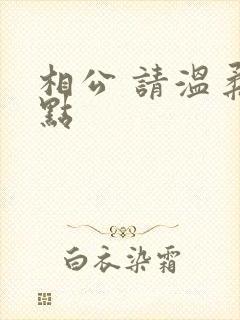 相公 請溫柔
點
白衣染霜